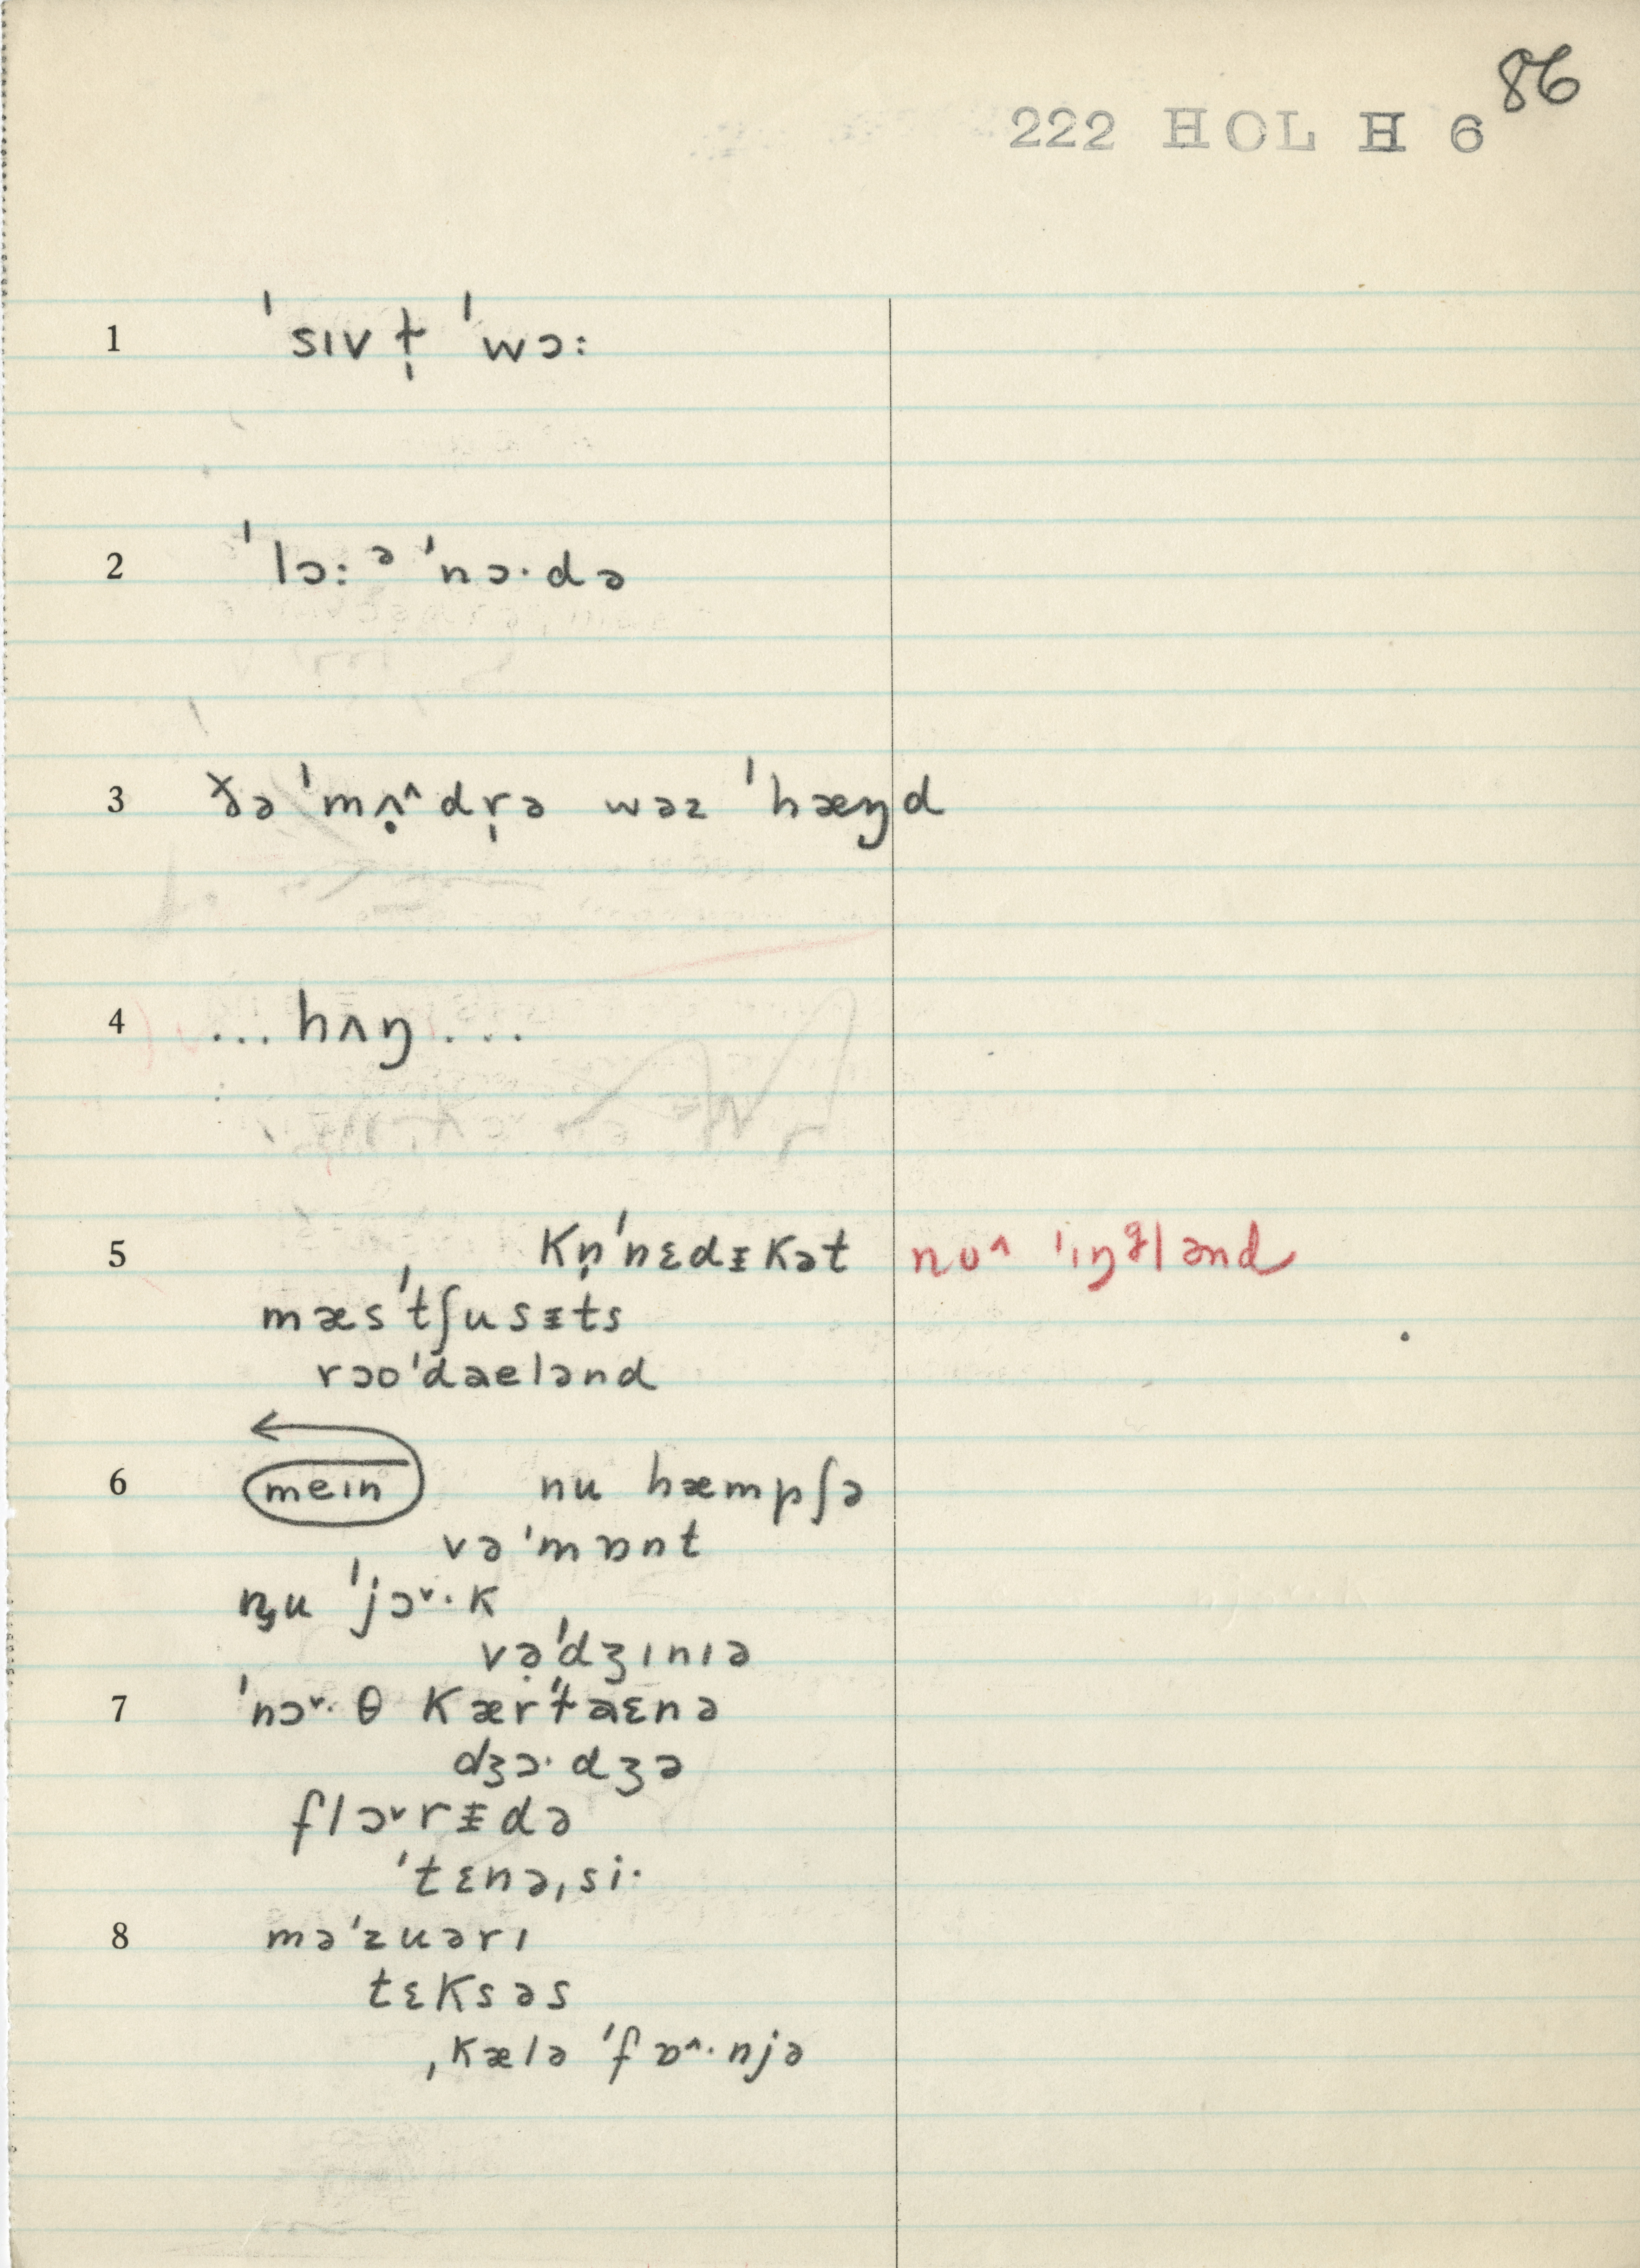 86
222 HOL H 6
1 ˈsɪv t̩ ˈwɔ:
2 ˈlɔ: ᵊ ˈnɔ·də
3 ðə ˈmʌ̣^dr̩ə wəz ˈhæŋd
4 ... hʌŋ ...
5 Kn̩ˈnɛdᵻKət nʊ^ ˈɪŋᶢlənd
mæsˈtʃusᵻts
rəoˈdaelənd
6 meɪn nu hæmpʃə
vəˈmɒnt
n̡u ˈjɔˇ·K
və̣ˈdʒɪnɪə
7 ˈnɔˇ·θ Kærˈt̴aɛnə
dʒɔ·dʒə
flɔˇrᵻdə
ˈtɛnəˌsi·
8 məˈzuərɪ
tɛKsəs
ˌKæləˈfɒ^·njə